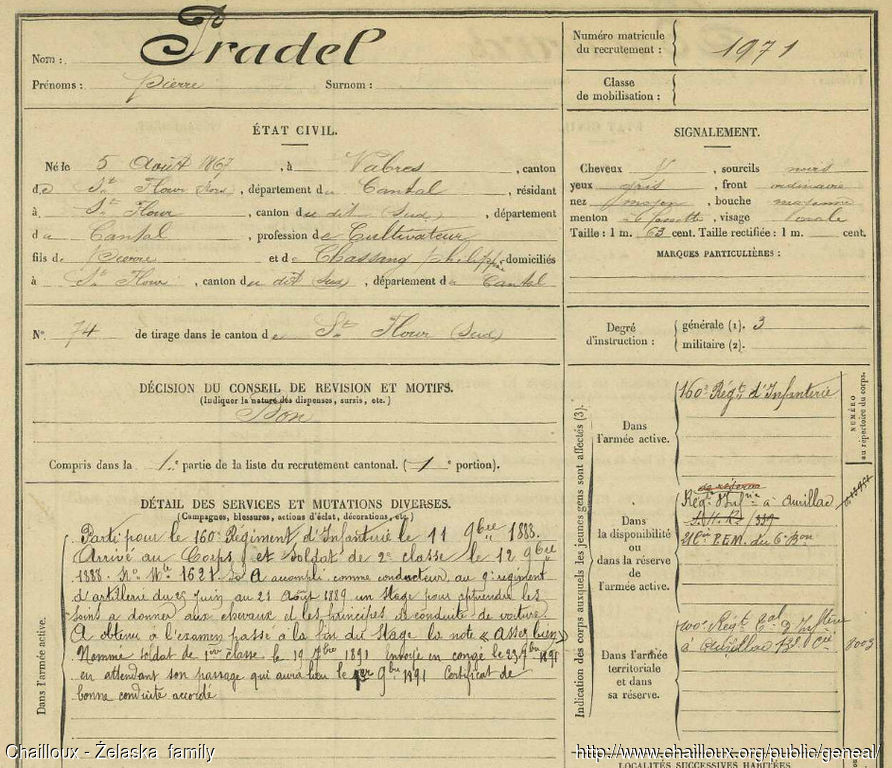 Nom : Pradel
Prénoms : Pierre Surnom :
Numéro matricule du recrutement : 1971
Classe de mobilisation :
ÉTAT CIVIL.
Né le 5 Août 1867, à Vabres, canton
de St Flour, département du Cantal, résidant
à St Flour, canton du dit (Sud), département
du Cantal, profession de Cultivateur
fils de Pierre et de Chassang Philippe domiciliés
à St Flour, canton du dit Sud, département du Cantal
SIGNALEMENT.
Cheveux N, sourcils noirs
yeux gris, front ordinaire
nez moyen, bouche moyenne
menton à fossette, visage ovale
Taille : 1 m. 63 cent. Taille rectifiée : 1 m. cent.
MARQUES PARTICULIÈRES :
No. 74 de tirage dans le canton de St Flour (Sud)
Degré d'instruction : générale (1). 3
militaire (2).
DÉCISION DU CONSEIL DE REVISION ET MOTIFS.
(Indiquer la nature des dispenses, sursis, etc.)
Bon
Compris dans la 1re partie de la liste du recrutement cantonal. (1e portion).
DÉTAIL DES SERVICES ET MUTATIONS DIVERSES.
(Campagnes, blessures, actions d'éclat, décorations, etc.)
Dans l'armée active.
Parti pour le 160e Régiment d'Infanterie le 11 9bre 1888.
Arrivé au Corps et Soldat de 2e classe le 12 9bre
1888. No Mle 1621. A accompli comme conducteur au 9e régiment
d'artillerie du 25 Juin au 21 Août 1889 un stage pour apprendre les
soins à donner aux chevaux et les principes de conduite de voiture
A obtenu à l'examen passé à la fin du stage la note « Assez bien »
Nommé soldat de 1ère classe le 19 7bre 1891 Envoyé en congé le 23 9bre 1891
en attendant son passage qui aura lieu le 1er 9bre 1891 Certificat de
bonne conduite accordé
Indication des corps auxquels les jeunes gens sont affectés (3).
NUMÉRO au répertoire du corps.
Dans l'armée active.
160e Régt d'Infanterie
Dans la disponibilité ou dans la réserve de l'armée active.
de réserve
Régt d'Infrie à Aurillac
Dans l'armée territoriale et dans sa réserve.
100e Régt Tal d'Inftérie
à Aurillac
8003
LOCALITÉS SUCCESSIVES HABITÉES
Chailloux - Żelaska family
http://www.chailloux.org/public/geneal/